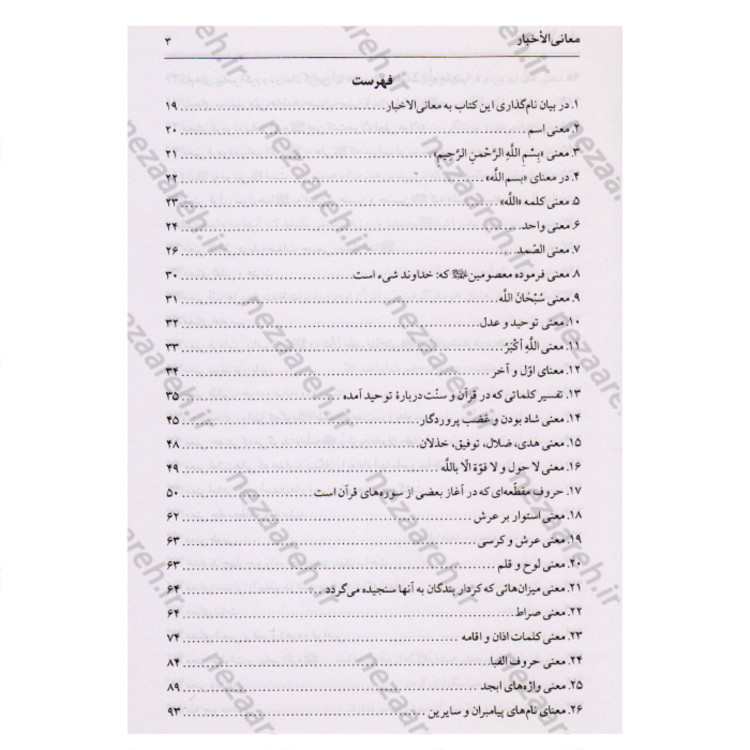 معانی‌الأخبار ۳
فهرست
۱. در بیان نام‌گذاری این کتاب به معانی‌الاخبار ۱۹
۲. معنی اسم ۲۰
۳. معنی «بِسْمِ اللَّهِ الرَّحْمنِ الرَّحِیمِ» ۲۱
۴. در معنای «بسم اللَّه» ۲۲
۵. معنی کلمه «اللَّه» ۲۳
۶. معنی واحد ۲۴
۷. معنی الصّمد ۲۶
۸. معنی فرموده معصومین که: خداوند شیء است ۳۰
۹. معنی سُبْحَانَ اللَّه ۳۱
۱۰. معنی توحید و عدل ۳۲
۱۱. معنی اللَّهُ أَکْبَرُ ۳۳
۱۲. معنای اوّل و آخر ۳۴
۱۳. تفسیر کلماتی که در قرآن و سنّت دربارهٔ توحید آمده ۳۵
۱۴. معنی شاد بودن و غضب پروردگار ۴۵
۱۵. معنی هدی، ضلال، توفیق، خذلان ۴۸
۱۶. معنی لا حول و لا قوّة الّا باللَّه ۴۹
۱۷. حروف مقطّعه‌ای که در آغاز بعضی از سوره‌های قرآن است ۵۰
۱۸. معنی استوار بر عرش ۶۲
۱۹. معنی عرش و کرسی ۶۳
۲۰. معنی لوح و قلم ۶۳
۲۱. معنی میزان‌هائی که کردار بندگان به آنها سنجیده می‌گردد ۶۴
۲۲. معنی صراط ۶۴
۲۳. معنی کلمات اذان و اقامه ۷۴
۲۴. معنی حروف الفبا ۸۴
۲۵. معنی واژه‌های ابجد ۸۹
۲۶. معنای نام‌های پیامبران و سایرین ۹۳
nezaareh.ir